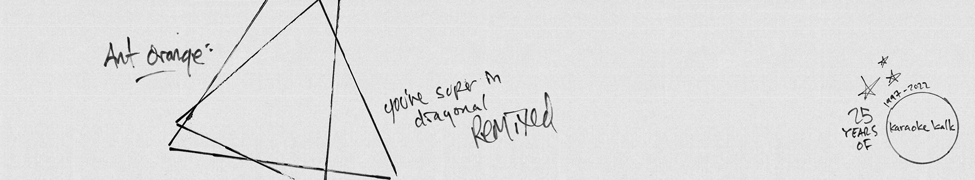 Ant Orange:
you're super in
diagonal
REMIXED
1997-2022
25
YEARS
OF
karaoke kalk